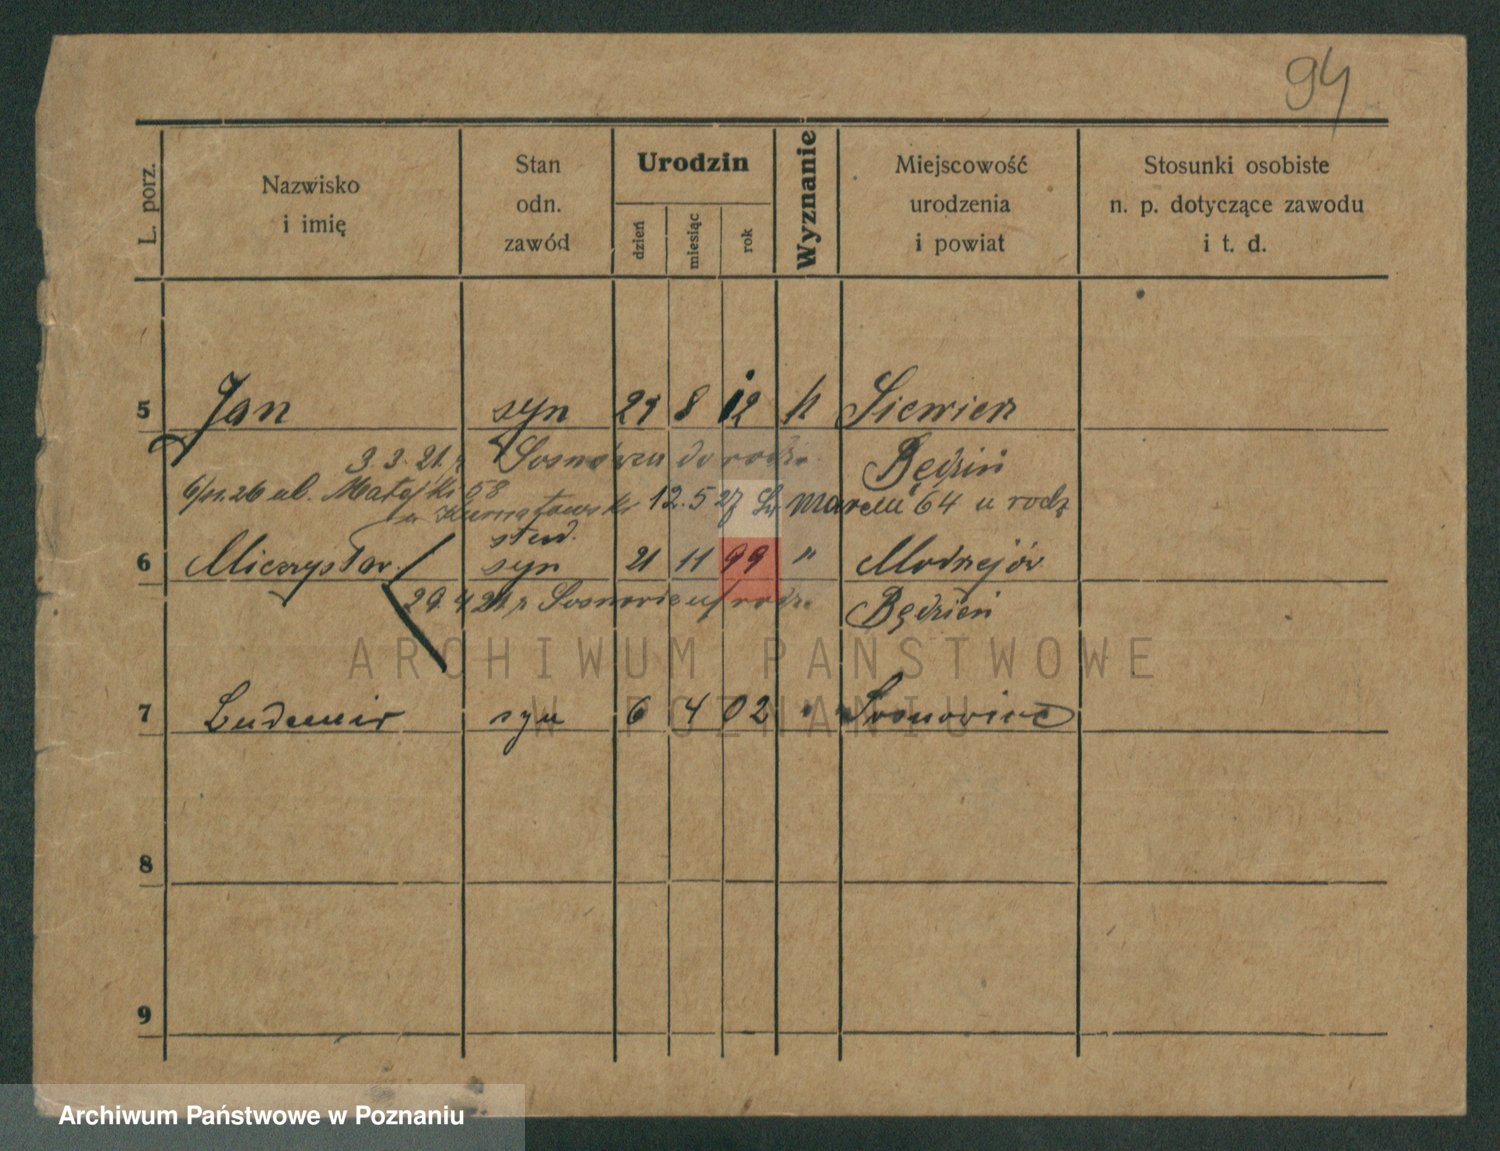 94
L. porz.
Nazwisko
i imię
Stan
odn.
zawód
Urodzin
dzień
miesiąc
rok
Wyznanie
Miejscowość
urodzenia
i powiat
Stosunki osobiste
n. p. dotyczące zawodu
i t. d.
5 Jan syn 29 8 12 Siewierz
3.3.21. r Sosnowcu do rodz. Będzin
6/11.26 ul. Matejki 58 12.5 27 64 u rodz
stud.
6 Mieczysław syn 21 11 99 " Modrzejów
29.4.21. r Sosnowiec rodz. Będzień
7 Ludomir syn 6 4 02 " Sosnowiec
8
9
ARCHIWUM PAŃSTWOWE
W POZNANIU
Archiwum Państwowe w Poznaniu